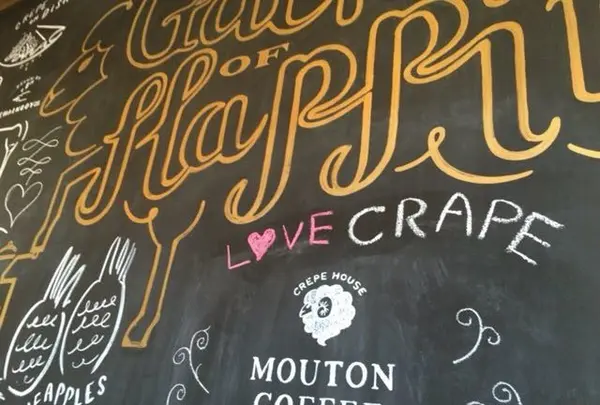 CREPE DISH
Gat
OF
Happi
LOVE CRAPE
CREPE HOUSE
MOUTON
COFFEE
EAPPLES